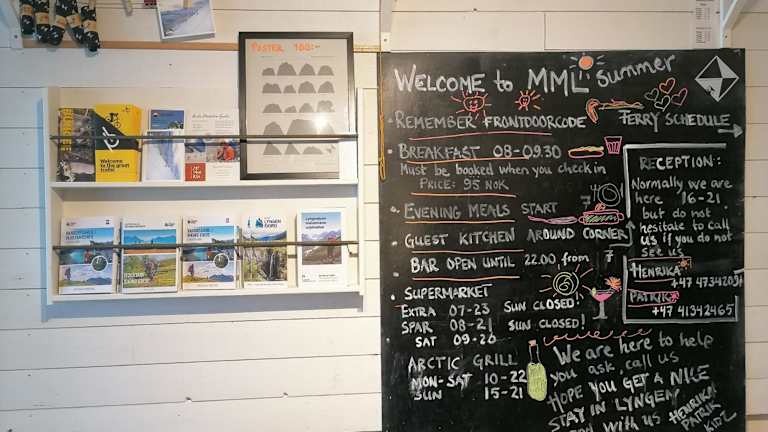 POSTER 100:-
Welcome
to the great
LYNGEN
FJORD
WELCOME to MML Summer
• REMEMBER FRONTDOORCODE
FERRY SCHEDULE
• BREAKFAST 08-09.30
Must be booked when you check in
PRICE: 95 NOK
• EVENING MEALS START
7
• GUEST KITCHEN AROUND CORNER
• BAR OPEN UNTIL 22.00, from 7
• SUPERMARKET
EXTRA 07-23 SUN CLOSED!
SPAR 08-21 SUN CLOSED!
SAT 09-20
ARCTIC GRILL
MON-SAT 10-22
SUN 15-21
RECEPTION:
Normally we are
here 16-21,
but do not
hesitate to call
us if you do not
see us
HENRIKA
PATRIK
+47 41342465
We are here to help
you ask, call us
HOPE YOU GET A NICE
STAY IN LYNGEN
with us
HENRIKA
PATRIK
KIDZ